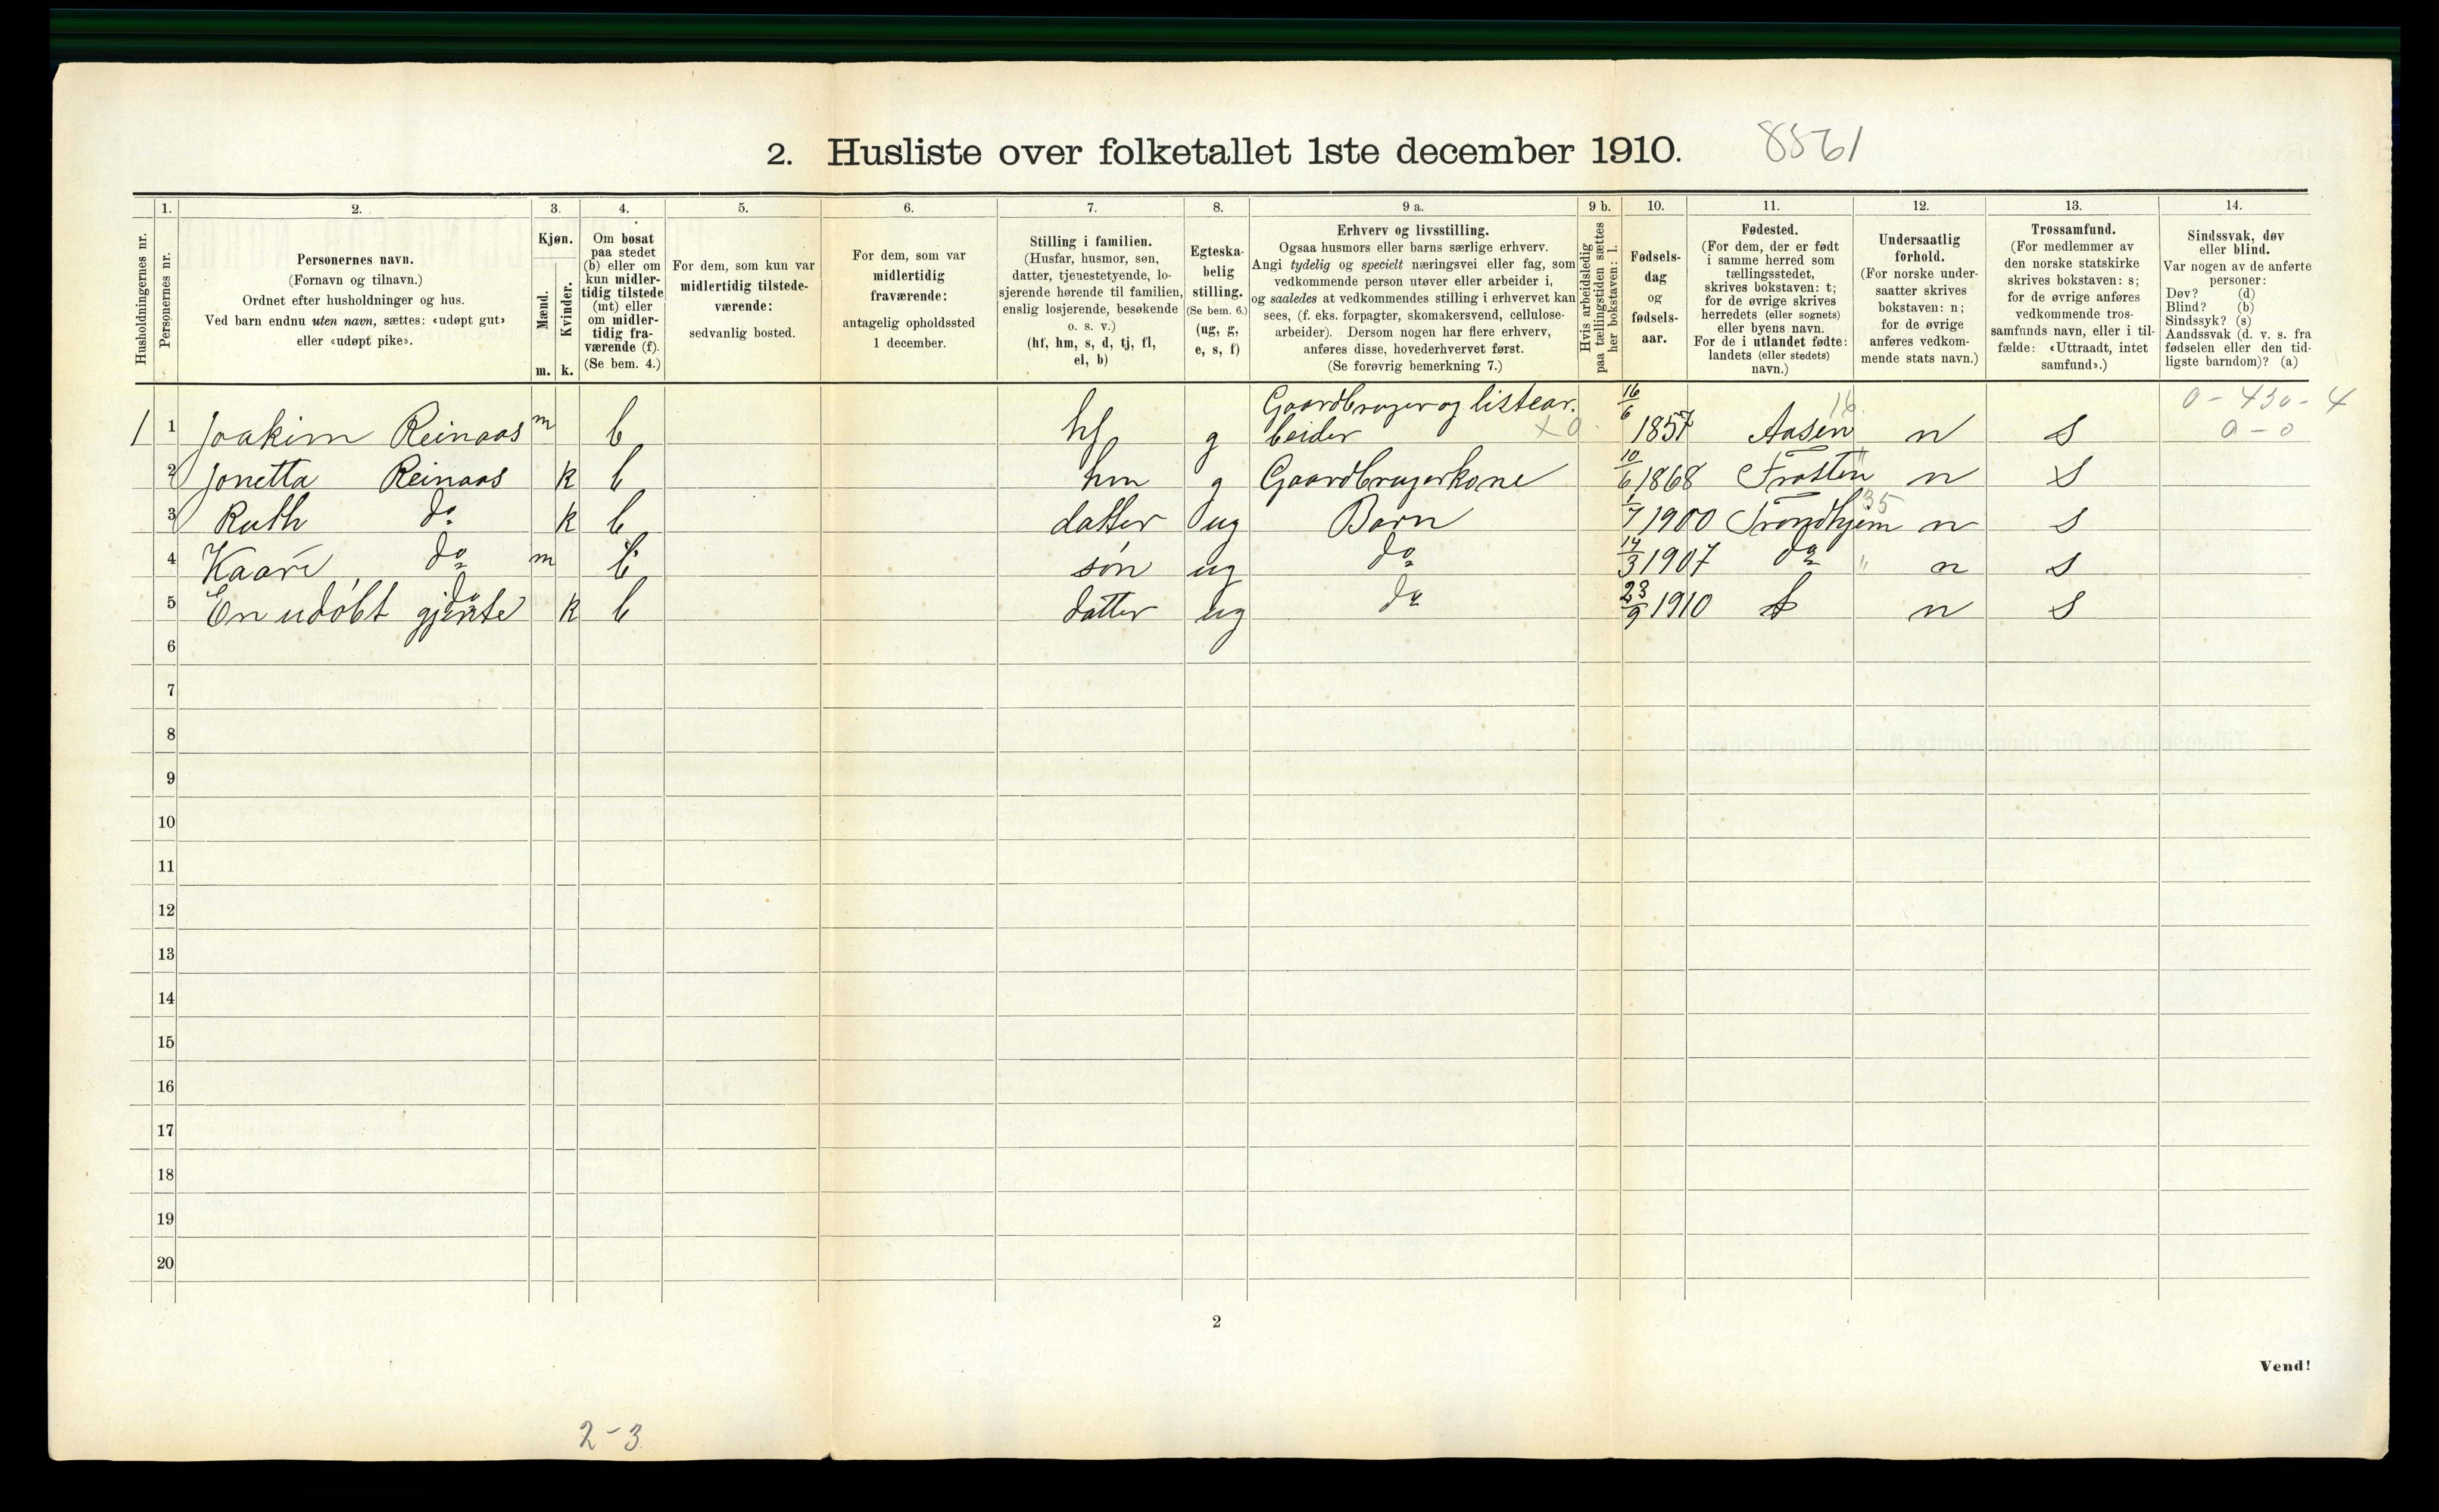 2. Husliste over folketallet 1ste december 1910. 8561
1. 2. 3. 4. 5. 6. 7. 8. 9 a. 9 b. 10. 11. 12. 13. 14.
Husholdningernes nr.
Personernes nr.
Personernes navn.
(Fornavn og tilnavn.)
Ordnet efter husholdninger og hus.
Ved barn endnu uten navn, sættes: «udøpt gut»
eller «udøpt pike».
Kjøn.
Mænd.
Kvinder.
m. k.
Om bosat
paa stedet
(b) eller om
kun midler-
tidig tilstede
(mt) eller
om midler-
tidig fra-
værende (f).
(Se bem. 4.)
For dem, som kun var
midlertidig tilstede-
værende:
sedvanlig bosted.
For dem, som var
midlertidig
fraværende:
antagelig opholdssted
1 december.
Stilling i familien.
(Husfar, husmor, søn,
datter, tjenestetyende, lo-
sjerende hørende til familien,
enslig losjerende, besøkende
o. s. v.)
(hf, hm, s, d, tj, fl,
el, b)
Egteska-
belig
stilling.
(Se bem. 6.)
(ug, g,
e, s, f)
Erhverv og livsstilling.
Ogsaa husmors eller barns særlige erhverv.
Angi tydelig og specielt næringsvei eller fag, som
vedkommende person utøver eller arbeider i,
og saaledes at vedkommendes stilling i erhvervet kan
sees, (f. eks. forpagter, skomakersvend, cellulose-
arbeider). Dersom nogen har flere erhverv,
anføres disse, hovederhvervet først.
(Se forøvrig bemerkning 7.)
Hvis arbeidsledig
paa tællingstiden sættes
her bokstaven: l.
Fødsels-
dag
og
fødsels-
aar.
Fødested.
(For dem, der er født
i samme herred som
tællingsstedet,
skrives bokstaven: t;
for de øvrige skrives
herredets (eller sognets)
eller byens navn.
For de i utlandet fødte:
landets (eller stedets)
navn.)
Undersaatlig
forhold.
(For norske under-
saatter skrives
bokstaven: n;
for de øvrige
anføres vedkom-
mende stats navn.)
Trossamfund.
(For medlemmer av
den norske statskirke
skrives bokstaven: s;
for de øvrige anføres
vedkommende tros-
samfunds navn, eller i til-
fælde: «Uttraadt, intet
samfund».)
Sindssvak, døv
eller blind.
Var nogen av de anførte
personer:
Døv? (d)
Blind? (b)
Sindssyk? (s)
Aandssvak (d. v. s. fra
fødselen eller den tid-
ligste barndom)? (a)
Gaardbruger og listear. 16/6 16 0 - 430 - 4
1 1 Joakim Reinaas m b hf g beider x 0 1857 Aasen n s 0 - 0
2 Jonetta Reinaas k b hm g Gaardbrugerkone 10/6 1868 Frosten " n s
3 Ruth do k b datter ug Barn 1/7 1900 Trondhjem 35 n s
4 Kaare do m b søn ug do 14/3 1907 do " n s
5 En udøbt gjente do k b datter ug do 23/9 1910 t n s
6
7
8
9
10
11
12
13
14
15
16
17
18
19
20
2
Vend!
2-3